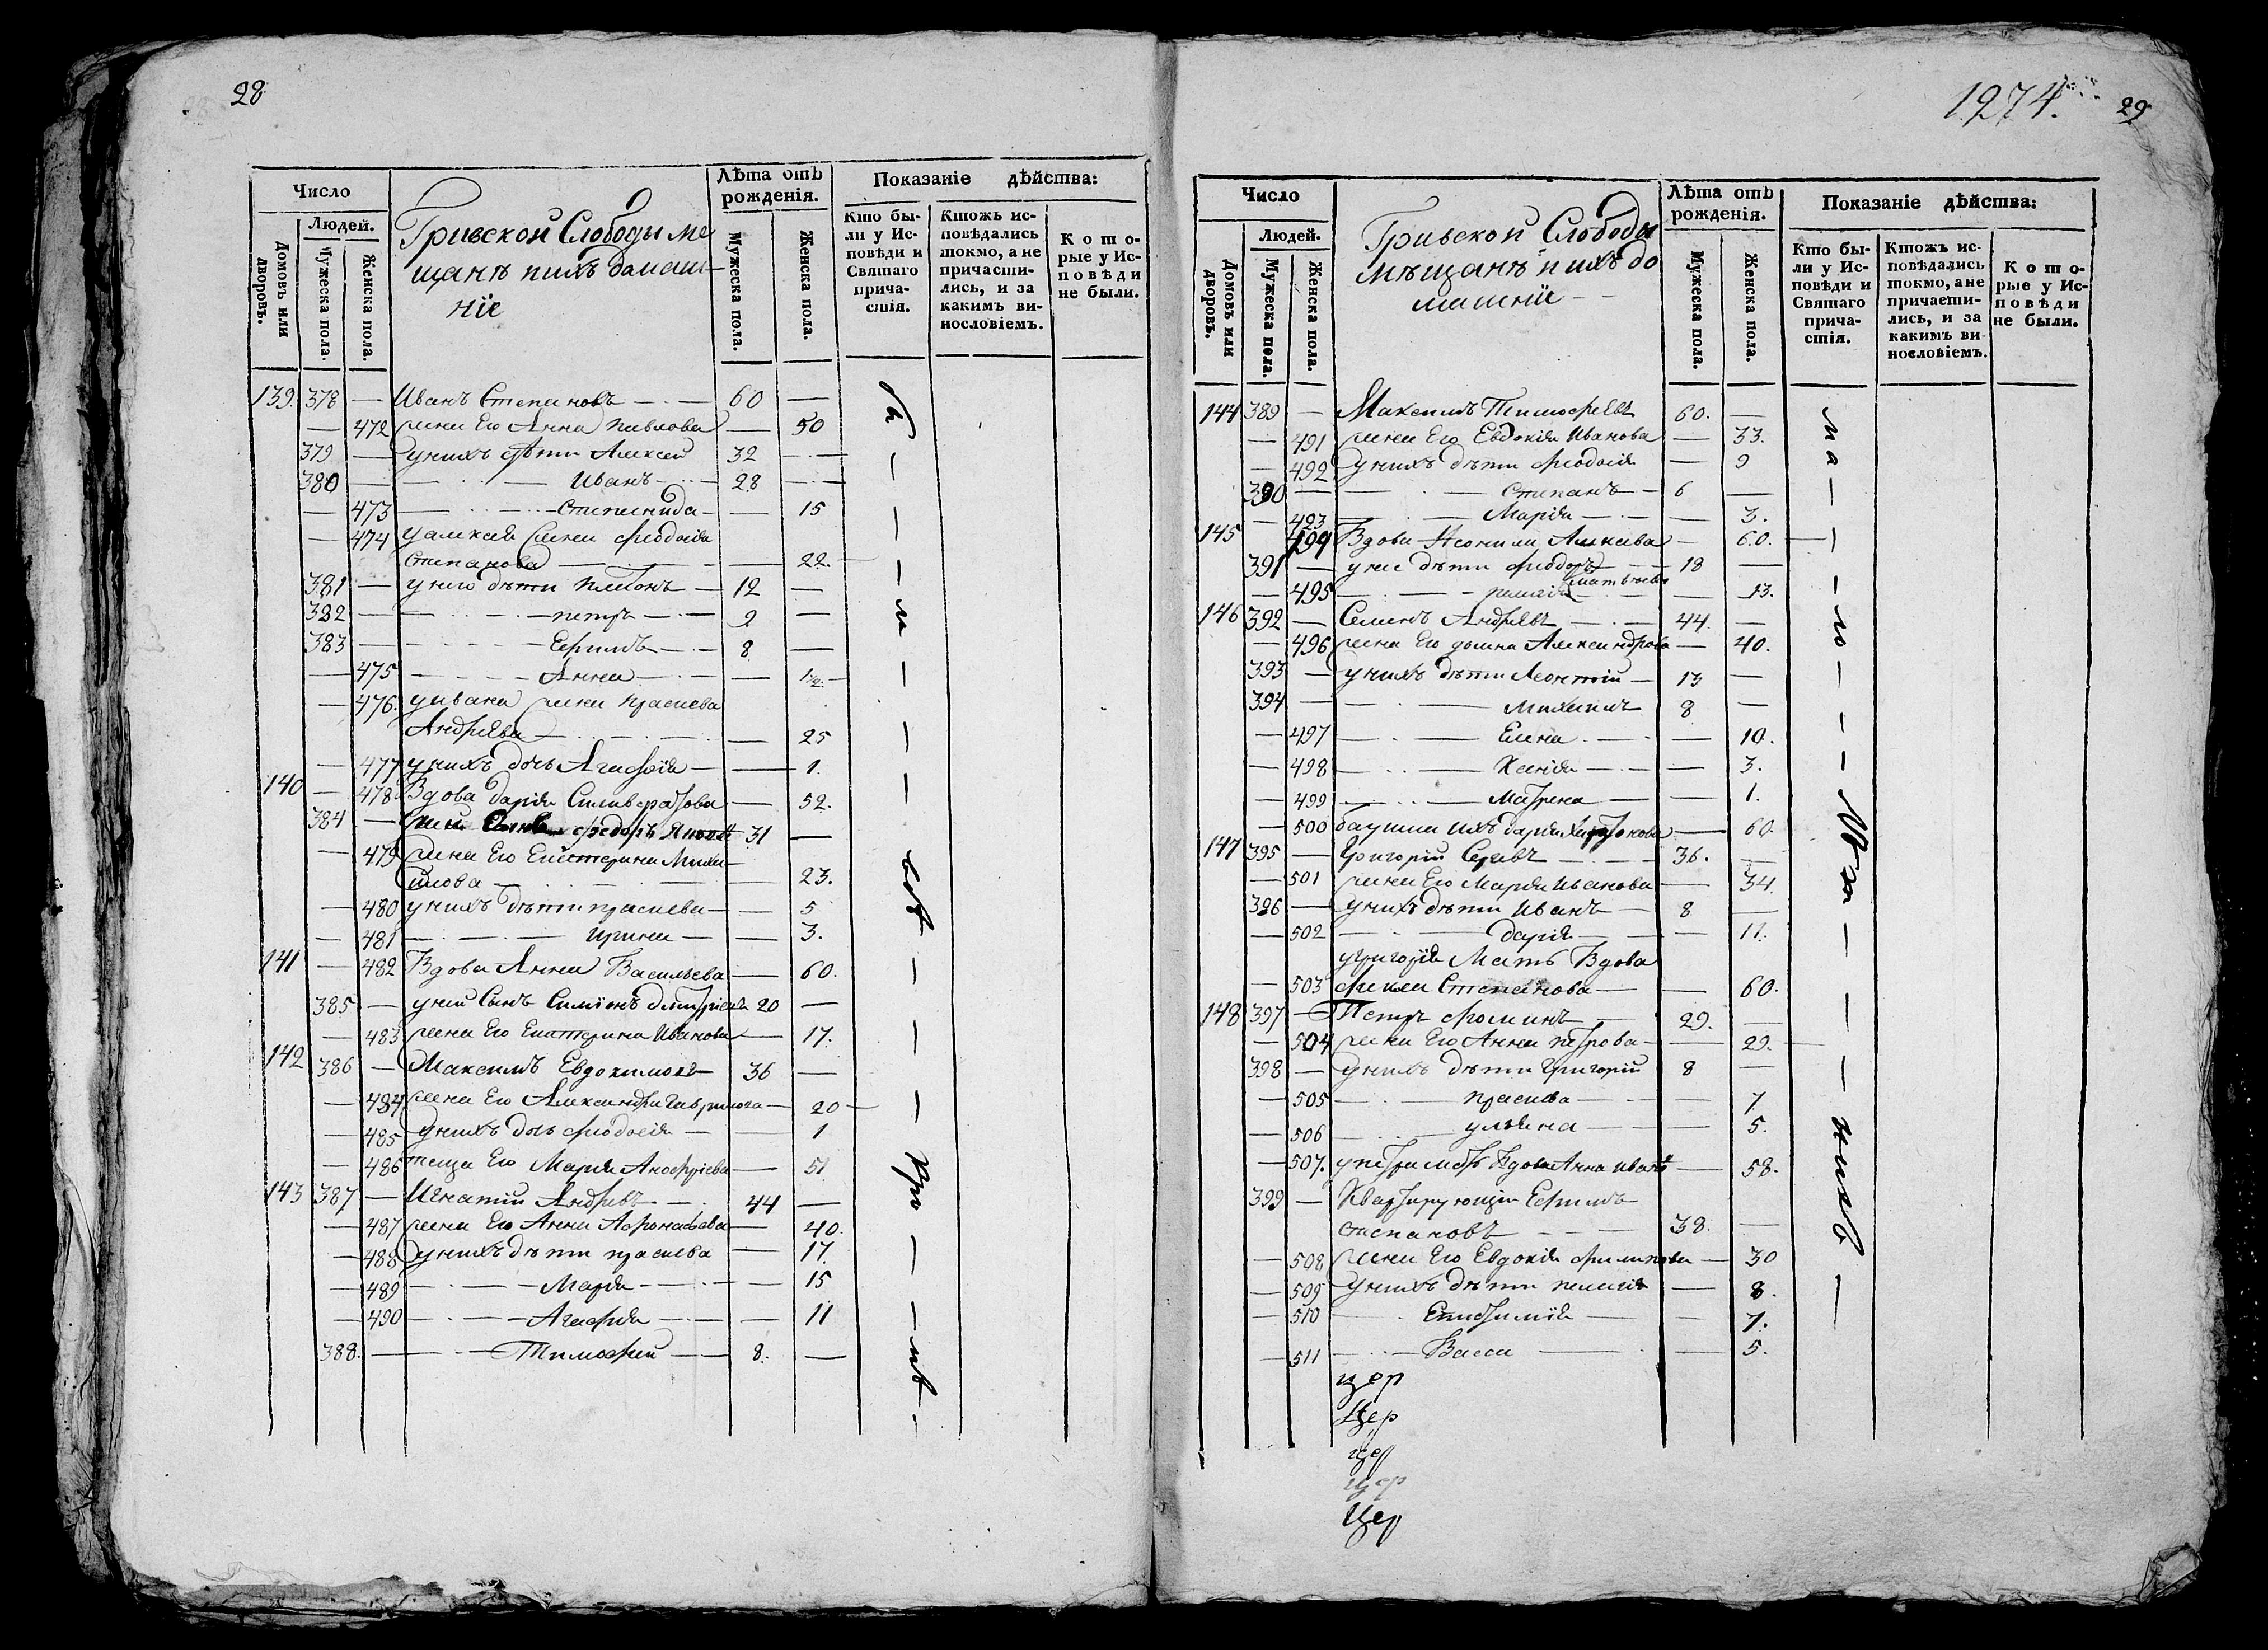 28
Число
Людей.
Домовъ или дворовъ.
Мужеска пола.
Женска пола.
Гривской Слободы ме
щанъ ихъ домаш-
ніе
Лѣта отъ рожденія.
Мужеска пола.
Женска пола.
Показаніе дѣйства:
Кто бы-
ли у Ис-
повѣди и
Святаго
прича-
стія.
Ктожъ ис-
повѣдались
токмо, а не
причасти-
лись, и за
какимъ ви-
нословіемъ.
Кото-
рые у Ис-
повѣди
не были.
139. 378 — Иванъ Степановъ — 60 —
— 472 жена Его Анна Павлова — 50
379 — у нихъ дѣти Алексей 32 —
380 — Иванъ — 28 —
— 473 — Степанида — 15
— 474 у алексея жена феодосія
степанова — 22
381 — у него дѣти Платонъ — 12 —
382 — петръ — 9 —
383 — Ефимъ — 8 —
— 475 — Анна —
— 476. у ивана жена праскева
Андрѣева — 25
— 477 у нихъ дочь Агафія — 1.
140 — 478 Вдова дарія Силивератова — 52.
384 — федоръ 31 —
— 479 жена Его Екатерина Михаи-
илова — 23.
— 480 у нихъ дѣти праскева — 5
— 481 — ирина — 3.
141 — 482 Вдова Анна Васильева — 60.
385 — у ней Сынъ Симіонъ дмитріевъ 20 —
— 483 жена Его Екатерина Иванова — 17.
142 386 — Максимъ Евдокимовъ 36 —
— 484 жена Его Александра гаврилова — 20
— 485 у нихъ дочь феодосія — 1
— 486 теща Его Марія Анофріева — 51
143 387 — Игнатій Андрѣвъ — 44 —
— 487 жена Его Анна Афонасьева — 40.
— 488 у нихъ дѣти праскева — 17.
— 489 — Марія — 15
— 490 — Агафия — 11
388. — Тимофей — 8. —
1274. 29
Число
Людей.
Домовъ или дворовъ.
Мужеска пола.
Женска пола.
Гривской Слободы
мѣщанъ ихъ до
машніе
Лѣта отъ рожденія.
Мужеска пола.
Женска пола.
Показаніе дѣйства:
Кто бы-
ли у Ис-
повѣди и
Святаго
прича-
стія.
Ктожъ ис-
повѣдались
токмо, а не
причасти-
лись, и за
какимъ ви-
нословіемъ.
Кото-
рые у Ис-
повѣди
не были.
144 389 — Максимъ Тимофѣевъ 60. —
— 491 жена Его Евдокія Иванова — 33.
— 492 у нихъ дѣти феодосія — 9
390 — Степанъ — 6 —
— 493 — Марія — 3.
145 — 494 Вдова Неонила — 60.
391 — у нее дѣти феодоръ — 18 —
матвѣевы
— 495 — 13.
146 392 — Семенъ Андрѣвъ — 44. —
— 496 жена Его домна Александрова — 40.
393 — у нихъ дѣти Леонтій — 13 —
394 — Михаилъ 8 —
— 497 — Елена — 10.
— 498 — Ксенія — 3.
— 499 — Матрена — 1.
— 500 бабушка ихъ дарія — 60.
147 395 — Григорій Сергѣвъ — 36. —
— 501 жена Его Марія Иванова — 34.
396 — у нихъ дѣти Иванъ — 8 —
— 502 — дарія — 11.
у григорія Мать Вдова
— 503 фекла Степанова — 60.
148 397 — Петръ фоминъ — 29. —
— 504 жена Его Анна петрова — 29.
398 — у нихъ дѣти Григорій 8 —
— 505 — праскева — 7
— 506 — ульяна — 5.
— 507. у петра мать Вдова Анна иванова — 58.
399 — Квартирующій Ефимъ
степановъ — 38. —
— 508 жена Его Евдокія филипова — 30
— 509 у нихъ дѣти пелагія — 8.
— 510 — 7.
— 511 — Васса — 5.
цер
Цер
цер
цер
Цер